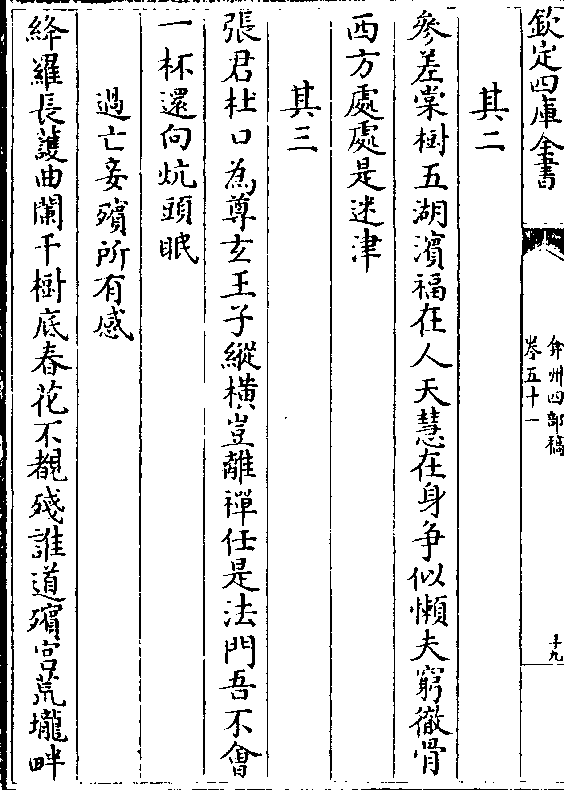 欽定四庫全書
弇州四部稿
卷五十一
十九
其二
參差棠樹五湖濱福在人天慧在身争似懶夫窮徹骨
西方處處是迷津
其三
張君杜口為尊𤣥王子縱横豈離禪任是法門吾不㑹
一杯還向炕頭眠
過亡妾殯所有感
絳羅長護曲闌干樹底春花不覩殘誰道殯宫荒壠畔